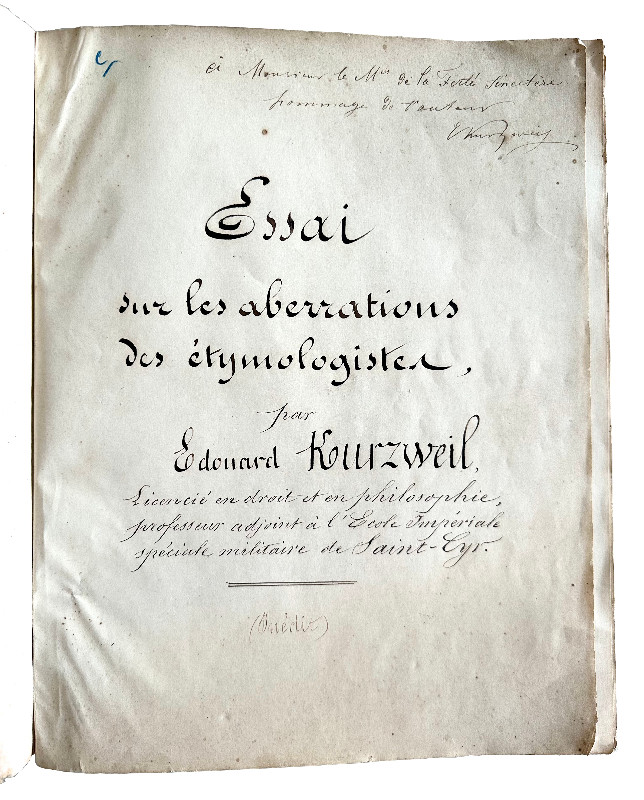 à Monsieur le Mis de la Ferté Sénectère
hommage de l'auteur
EKurzweil
Essai
sur les aberrations
des étymologistes,
par
Edouard Kurzweil,
Licencié en droit et en philosophie,
professeur adjoint à l'Ecole Impériale
spéciale militaire de Saint-Cyr.
(Inédit)